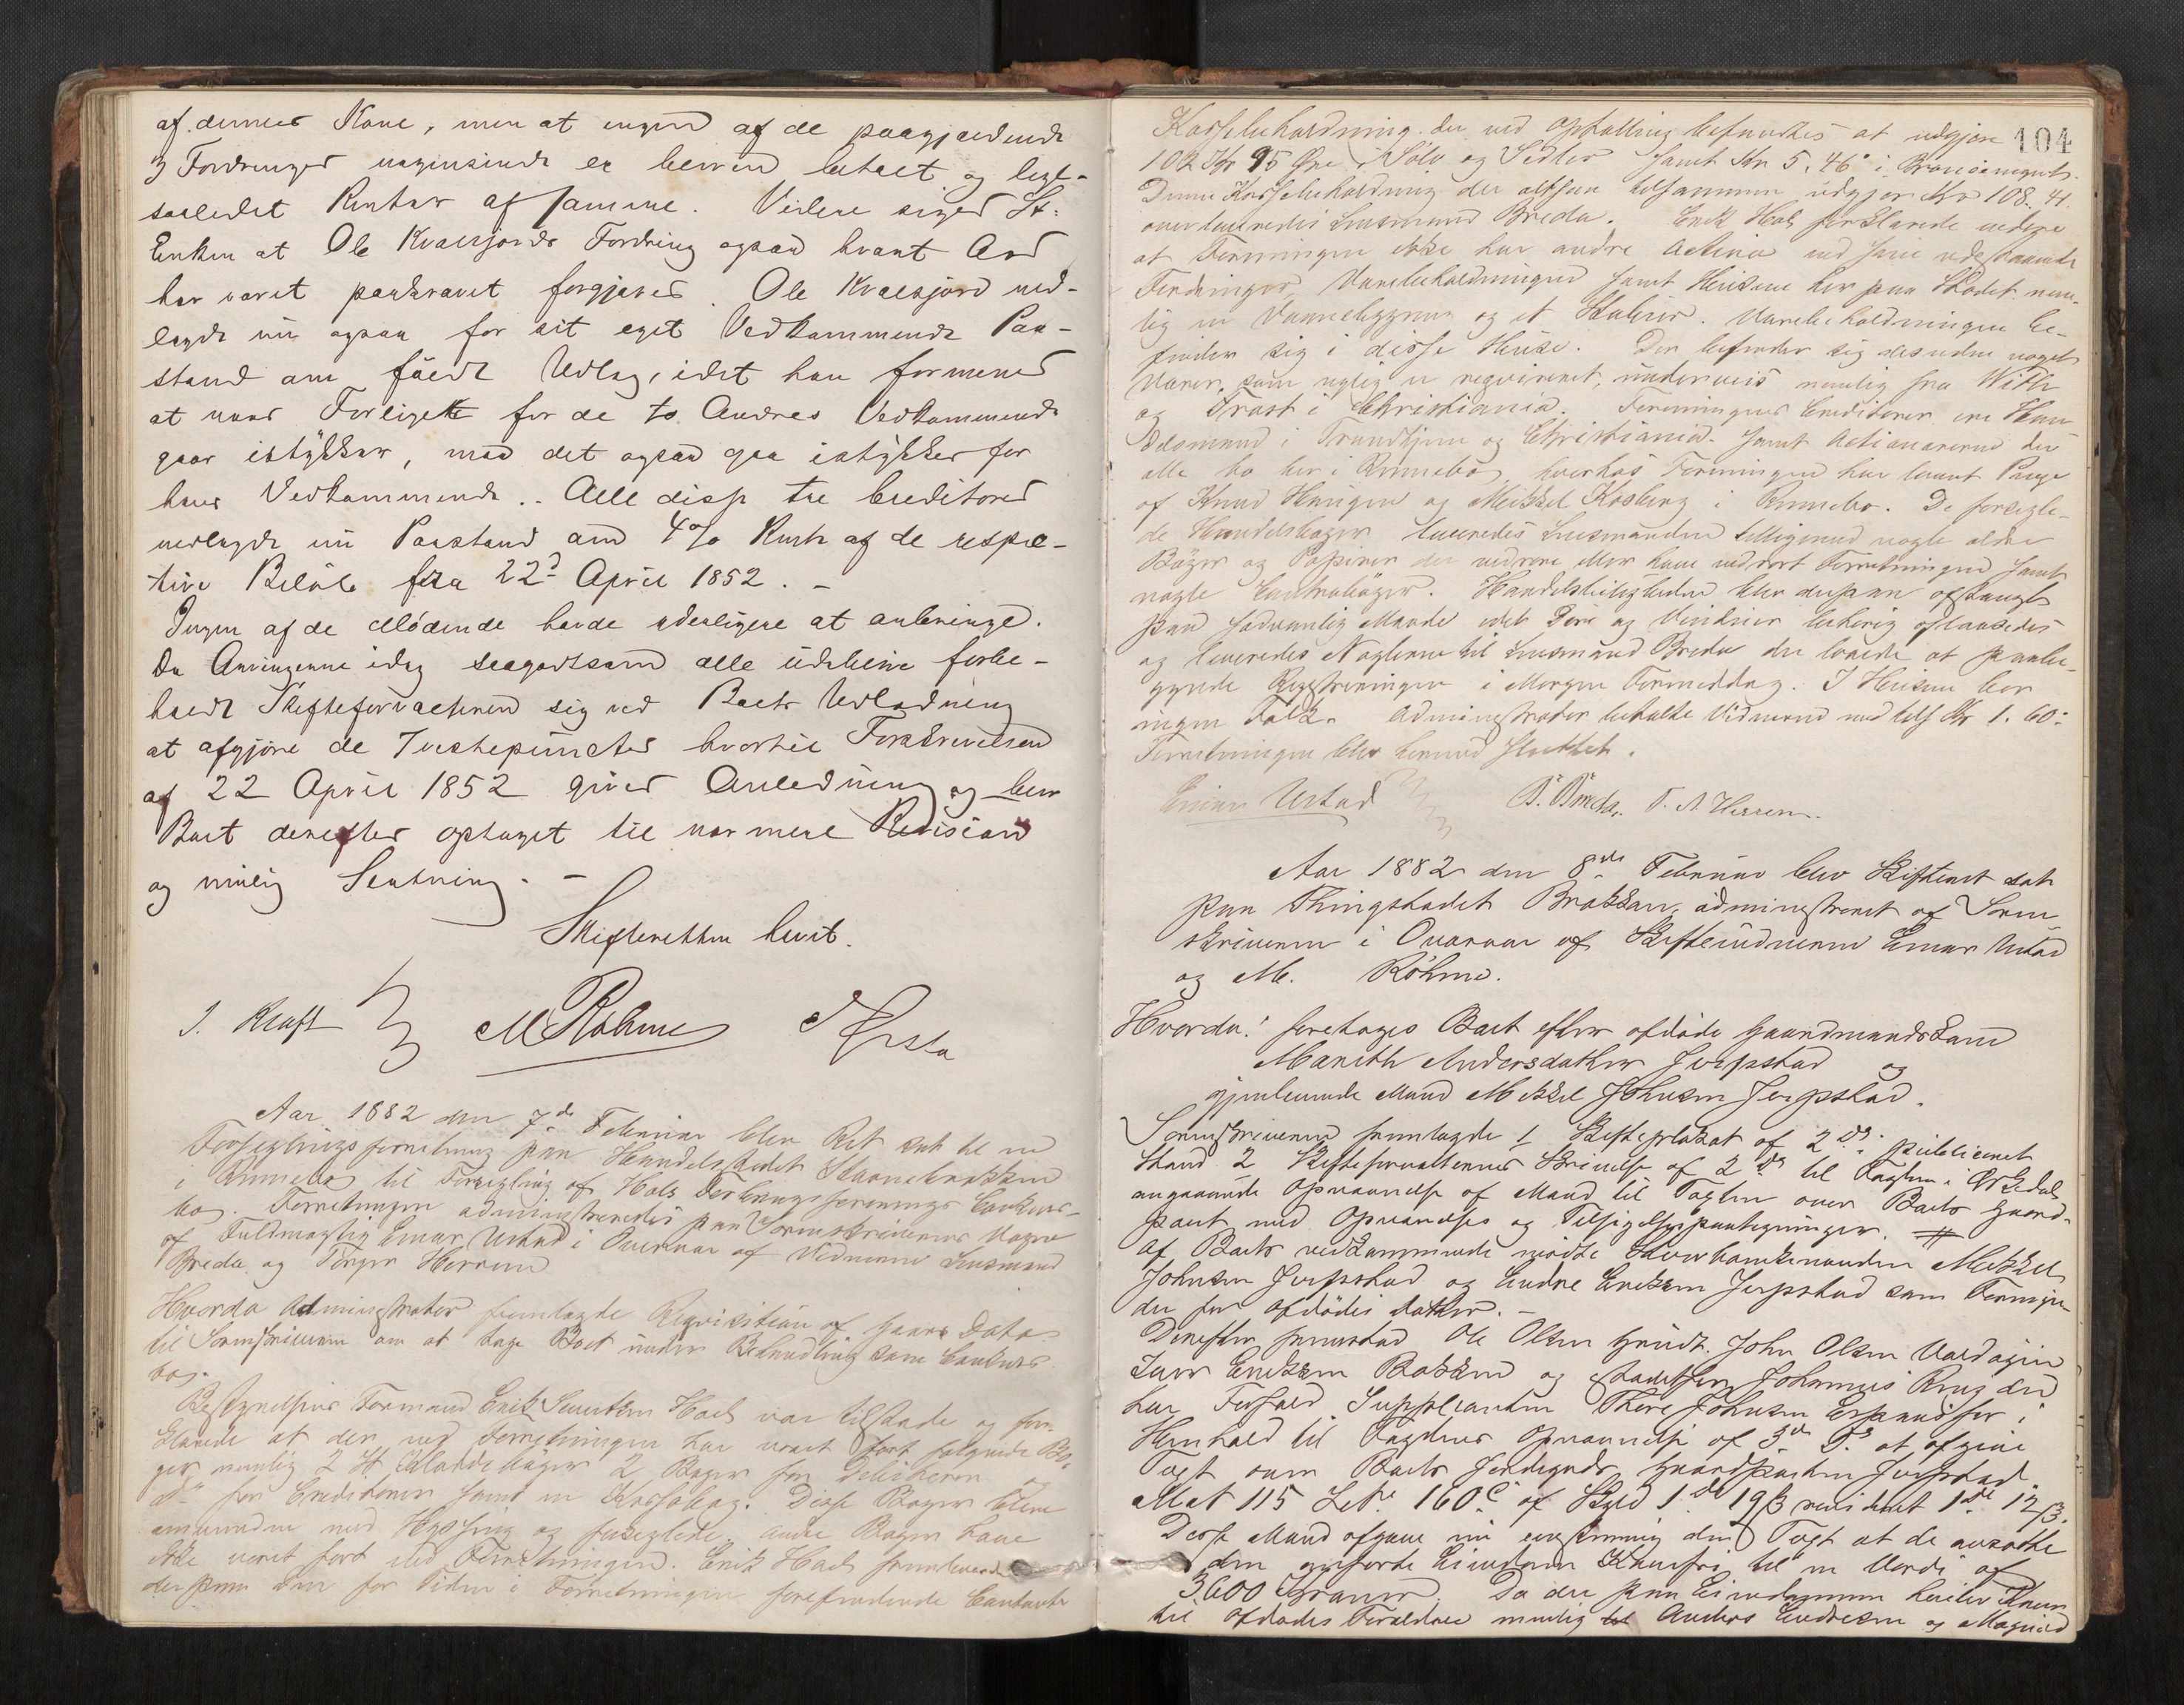 af dennes Kone, men at ingen af de paagjældende
3 Fordringer nogensinde er bleven betalt og lige-
saaledes Renter af samme. Videre siger St:
Enken at Ole Kvalsjords Fordring ogsaa hvert Aar
har været paakrævet forgjæves. Ole Kvalsjord ned-
lagde nu ogsaa for sit eget Vedkommende Paa-
stand om fuldt Udlæg, idet han formener
at naar Forliget for de to Andres Vedkommende
gaar istykker, maa det ogsaa gaa istykker for
hans Vedkommende. Alle disse tre Creditorer
nedlagde nu Paastand om 4% Rente af de respec-
tive Beløb fra 22d April 1852. -
Ingen af de Mødende havde yderligere at anbringe.
Da Arvingerne idag saagodtsom alle udebleve forbe-
holdt Skifteforvalteren sig ved Boets Udlodning
at afgjøre de Tvistepuncter hvortil Forskrivelsen
af 22 April 1852 giver Anledning og blev
Boet derefter optaget til nærmere Revision
og mulig Slutning. -
Skifteretten hævet.
J. Kraft M Røhme J Ørsta
Aar 1882 den 7de Februar blev Ret sat til en
Forseglingsforretning paa Handelsstedet Stavnebrækken
i Rennebo til Forsegling af Hols Forbrugsforenings Conkurs-
bo. Forretningen administreredes paa Sorenskriverens Vegne
af Fuldmægtig Einar Ustad i Overvær af Vidnerne Lensmand
Breda og Torger Herrem
Hvorda Administrator fremlagde Requisition af Gaars Dato
til Sorenskriveren om at tage Boet under Behandling som Conkurs-
bo.
Bestyrelsens Formand Erik Sivertsen Hoel var tilstede og for-
klarede at der ved Forretningen har været ført følgende Bø-
ger nemlig 2 St Kladdebøger 2 Bøger for Debitorer og
do for Creditorer samt en Kassabog. Disse Bøger bleve
ombundne med Hyssing og forseglede. Andre Bøger have
ikke været ført ved Forretningen. Erik Hoel fremleverede
derpaa den for Tiden i Forretningen forefindende Contante
104
Kassebeholdning der ved Optælling befandtes at udgjøre
102 Kr 95 Øre i Sølv og Sedler samt Kr 5.46 i Broncemynt.
Denne Kassebeholdning der altsaa tilsammen udgjør Kr 108.41.
overleveredes Lensmand Breda. Erik Hoel forklarede videre
at Foreningen ikke har andre Activa end sine udestaaende
Fordringer, Varebeholdningen samt Husene her paa Stedet nem-
lig en Vaanebygning og et Stabur. Varebeholdningen be-
finder sig i disse Huse. Der befinder sig desuden noget
Varer, som nylig er requireret, underveis nemlig fra With
og Trost i Christiania. Foreningens Creditorer ere Han-
delsmænd i Trondhjem og Christiania samt Actionærerne der
alle bo her i Rennebo, hvorhos Foreningen har laant Penge
af Knud Heringen og Mikkel Kosberg i Rennebo. De forsegle-
de Handelsbøger leveredes Lensmanden tilligemed nogle ældre
Bøger og Papirer der vedrøre eller have vedrørt Forretningen samt
nogle Contrabøger. Handelsleiligheden blev derpaa afstængt
paa sædvanlig Maade idet Døre og Vinduer behørig aflaasedes
og leveredes Nøglerne til Lensmand Breda der lovede at paabe-
gynde Registreringen i Morgen Formiddag. I Husene bor
ingen Folk. Administrator betalte Vidnerne med tils Kr 1.60:
Forretningen blev hermed sluttet.
Einar Ustad B. Breda. T. A. Herrem.
Aar 1882 den 8de Februar blev Skifteret sat
paa Thingstedet Brækken, administreret af Soren-
skriveren i Overvær af Skiftevidnerne Einar Ustad
og M. Røhme.
Hvorda! foretages Boet efter afdøde Gaardmandskone
Marith Andersdatter Jerpstad og
gjenlevende Mand Mikkel Johnsen Jerpstad.
Sorenskriveren fremlagde 1 Skifteplakat af 2 ds. publiceret
stand. 2 Skifteforvalterens Skrivelse af 2 ds til Fogden i Orkedal
angaaende Opnævnelse af Mænd til Taxten over Boets Gaard-
part med Opnævnelses og Tilsigelsespaategninger.
Af Boets vedkommende mødte Stervboenkemanden Mikkel
Johnsen Jerpstad og Endre Eriksen Jerpstad som Formyn-
der for Afdødes datter. -
Derefter fremstod Ole Olsen Grindt. John Olsen Uvdagen
Ivar Eriksen Bakken og istedetfor Johannes Krug der
har Forfald Supplianten Thore Johnsen Espaas for i
Henhold til Fogdens Opnævnelse af 3de ds at afgive
Taxt over Boets Jordegods Gaardparten Jerpstad.
Mat 115 Lebe 160c af Skyld 1 dl 19β revideret 1 dl 12β.
Disse Mænd afgave nu eenstemmig den Taxt at de ansatte
den anførte Eiendom Kaarfri til en Værdi af
3600 Kroner. Da der paa Eiendommen hviler Kaar
til Afdødes Forældre nemlig Anders Endresen og Magnild